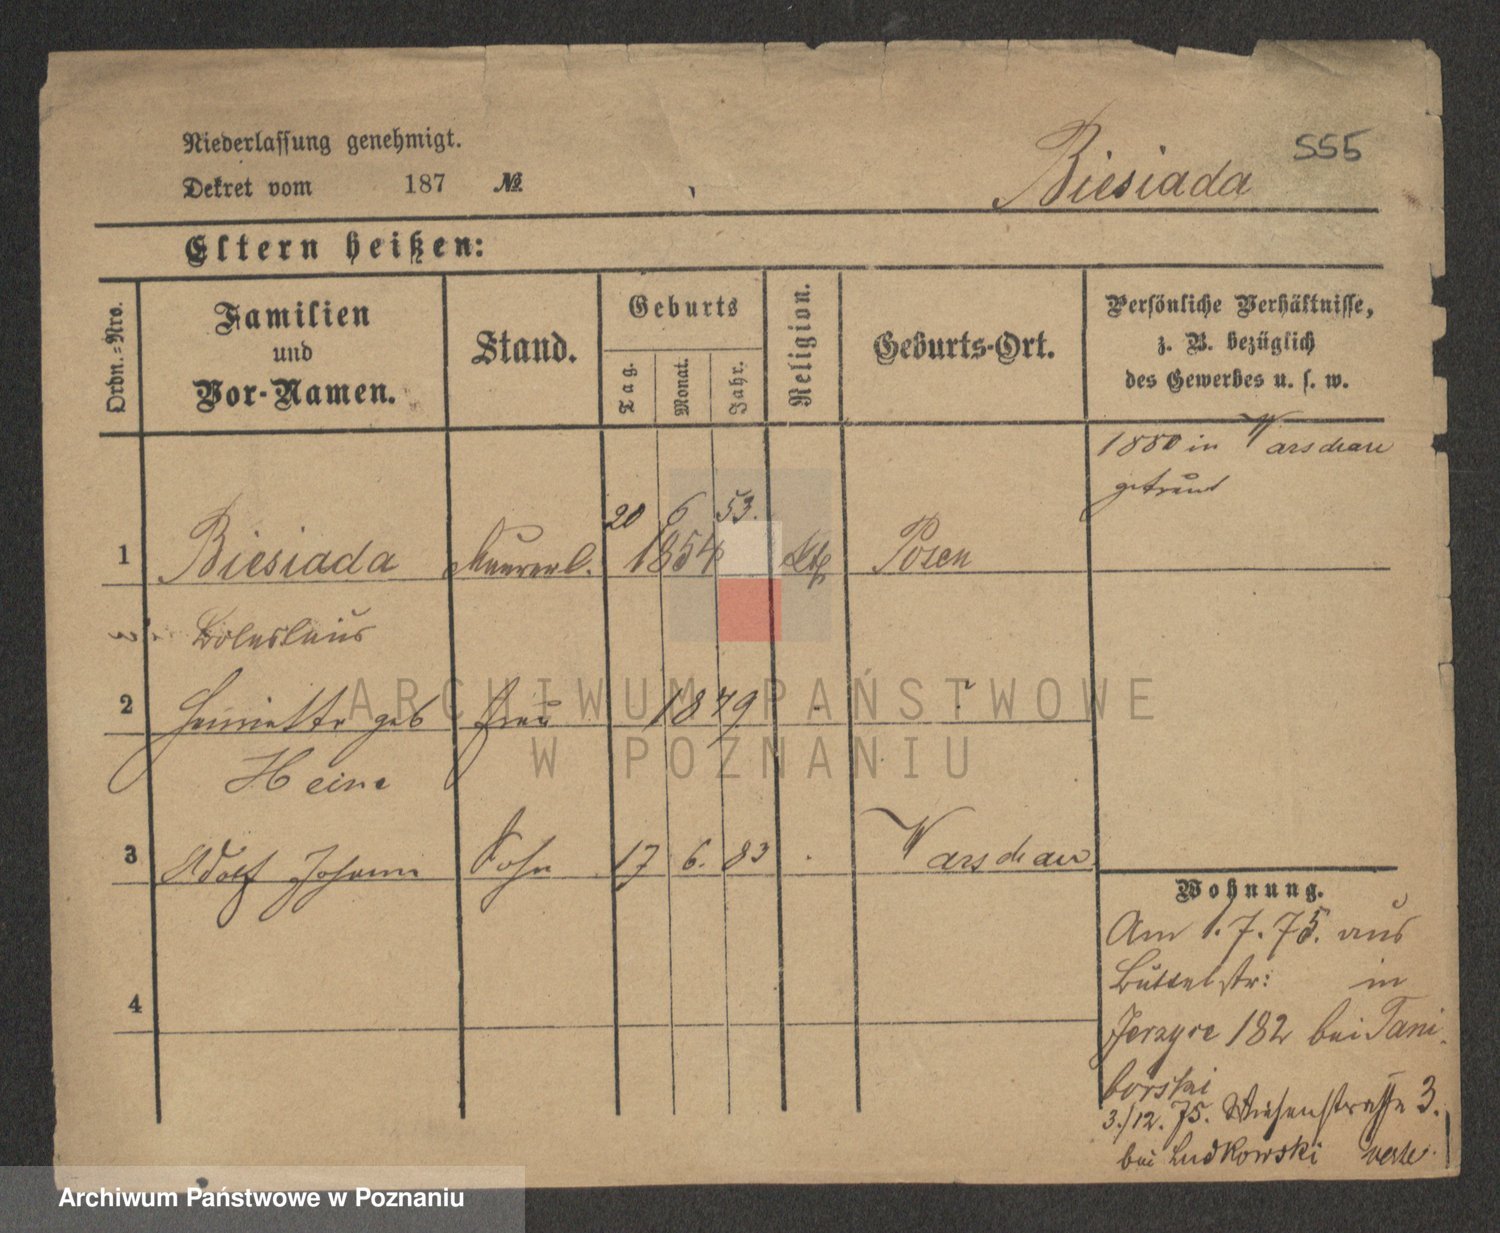 Niederlassung genehmigt.
Dekret vom 187 №
Biesiada
555
Eltern heißen:
Ordn.-Nro.
Familien
und
Vor-Namen.
Stand.
Geburts
Tag.
Monat.
Jahr.
Religion.
Geburts-Ort.
Persönliche Verhältnisse,
z. B. bezüglich
des Gewerbes u. s. w.
1880 in Warschau
getraut
20 6 53.
1 Biesiada Maurerl. 1854 Kth Posen
Boleslaus
2 Henriette geb Frau 1879 ?
Heine
3 Adolf Johann Sohn 17 6. 83 Warschau
Wohnung.
Am 1.7.75. aus
Büttelstr: in
Jerzyce 182 bei Tani-
borski
3./12.75. Wiesenstrasse 3.
bei Ludkowski
4
ARCHIWUM PAŃSTWOWE
W POZNANIU
Archiwum Państwowe w Poznaniu